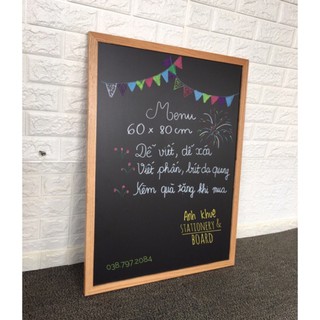 Menu
60 x 80cm
Dễ viết, dễ xóa
Viết phấn, bút dạ quang
Kèm quà tặng khi mua
Anh Khuê
STATIONERY &
BOARD
038.797.2084